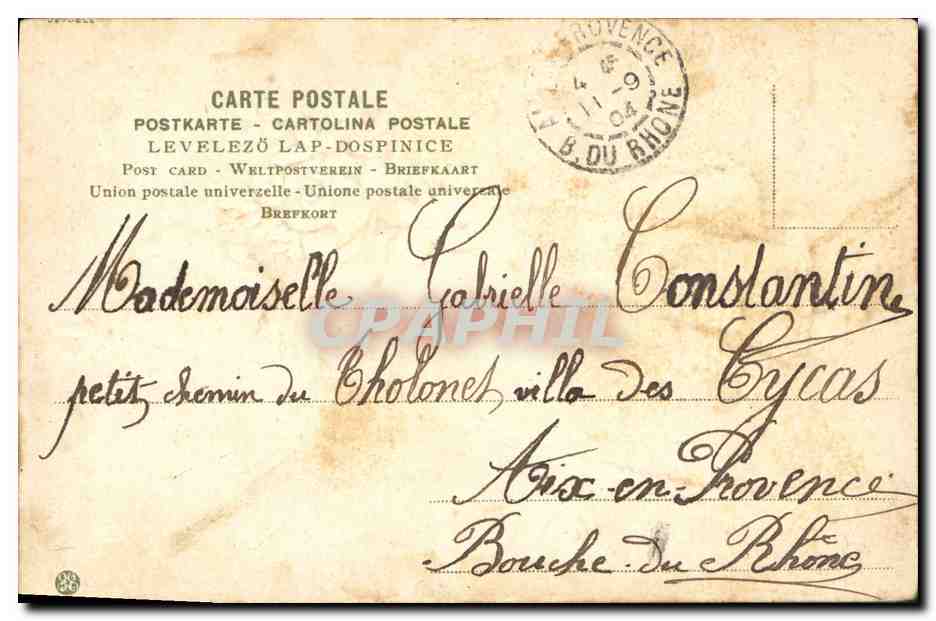 CARTE POSTALE
POSTKARTE - CARTOLINA POSTALE
LEVELEZÖ LAP-DOSPINICE
POST CARD - WELTPOSTVEREIN - BRIEFKAART
Union postale univerzelle - Unione postale universale
BREFKORT
PROVENCE
4 E
11 -9
04
B. DU RHONE
Mademoiselle Gabrielle Constantin
CPAPHIL
petit chemin du Tholonet villa des Cycas
Aix-en-Provence
Bouche-du-Rhône